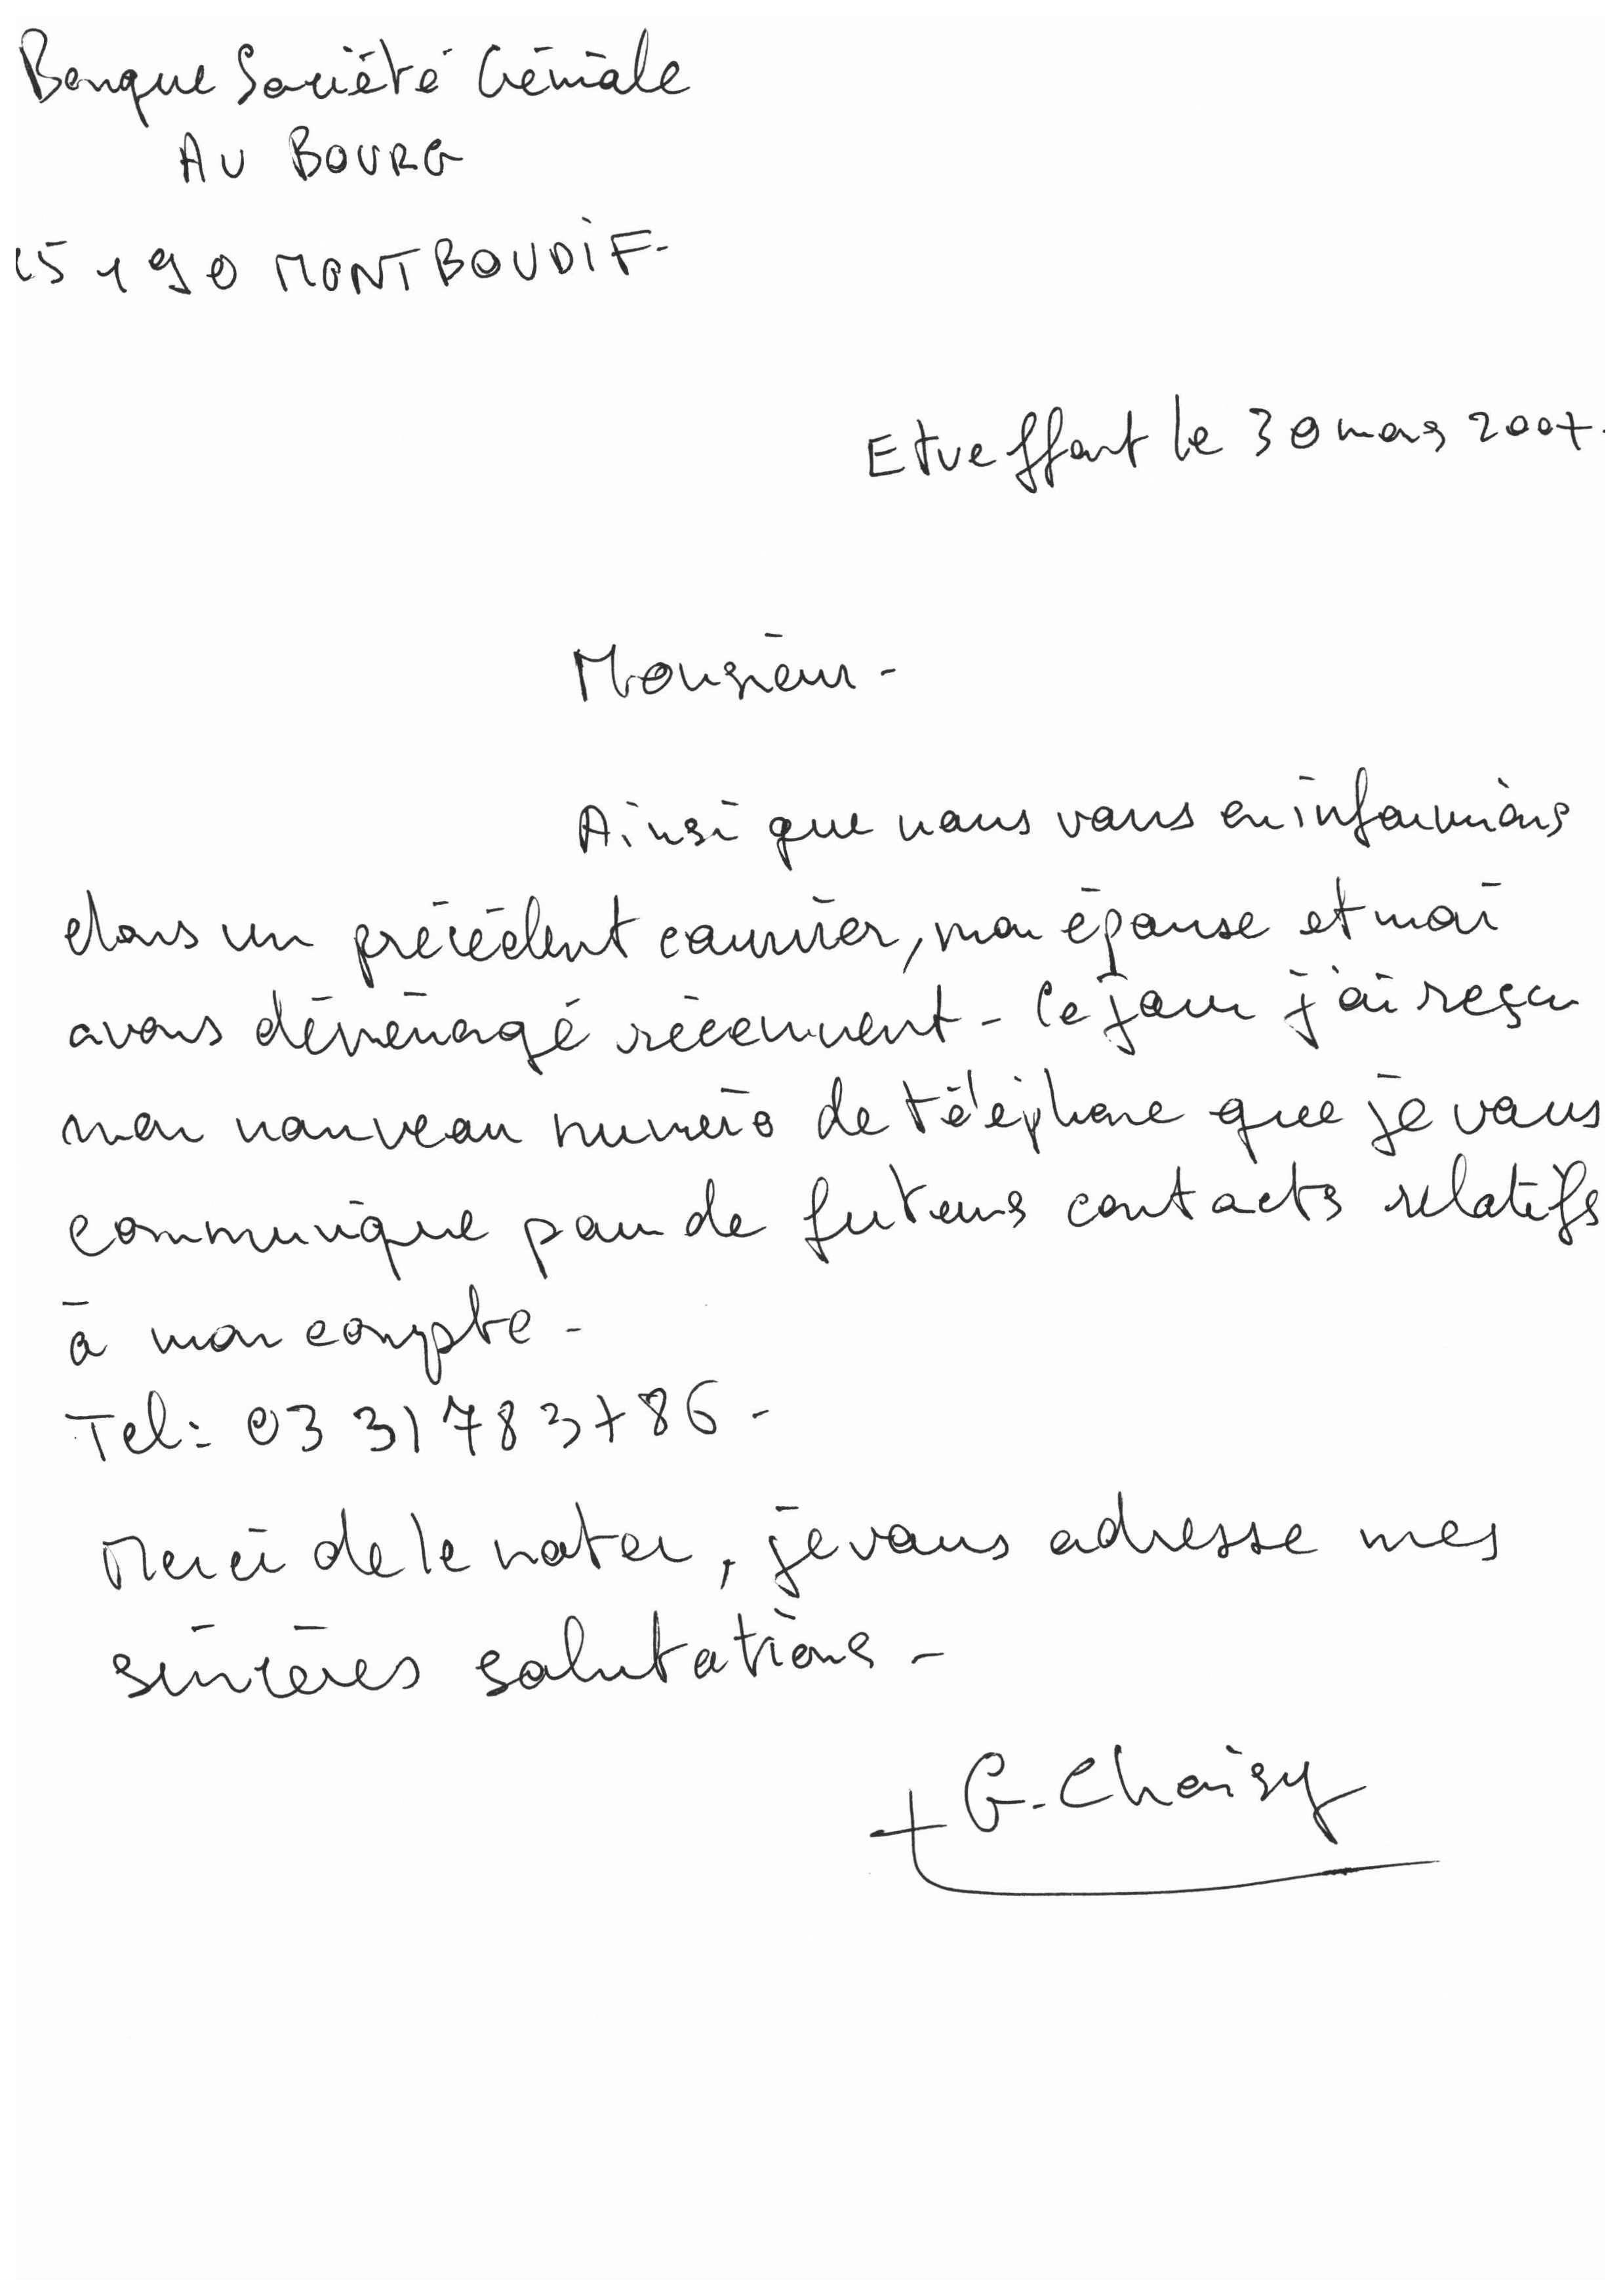 Banque Société Géniale
AU BOURG
15190 MONTBOUDIF.
Etueffont le 30 mars 2007.
Monsieur -
Ainsi que nous vous en informions
dans un précédent courrier, mon épouse et moi
avons déménagé récemment - Ce jour j'ai reçu
mon nouveau numéro de téléphone que je vous
communique pour de futurs contacts relatifs
à mon compte -
Tel : 03 31 78 37 86 -
Merci de le noter, je vous adresse mes
sincères salutations -
G. Choisy